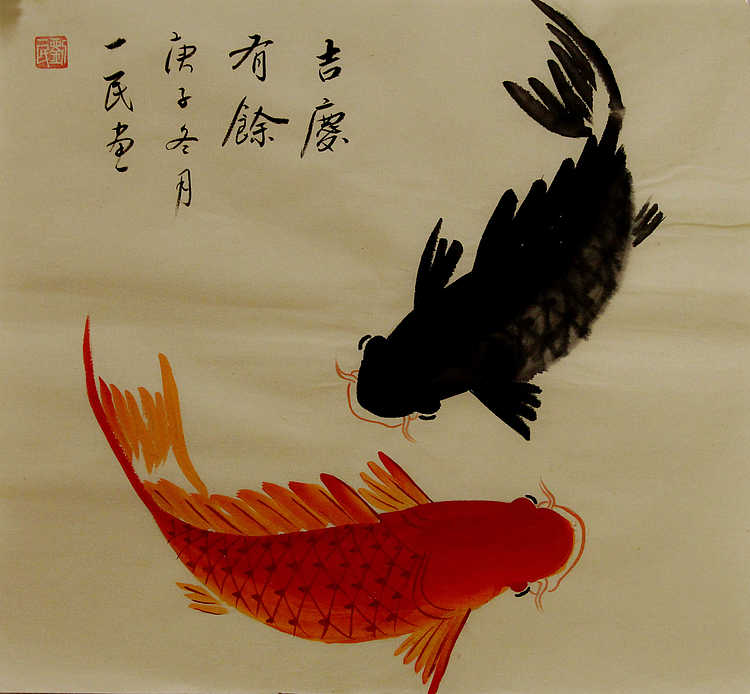 吉慶
有餘
庚子冬月
一民畫
劉民